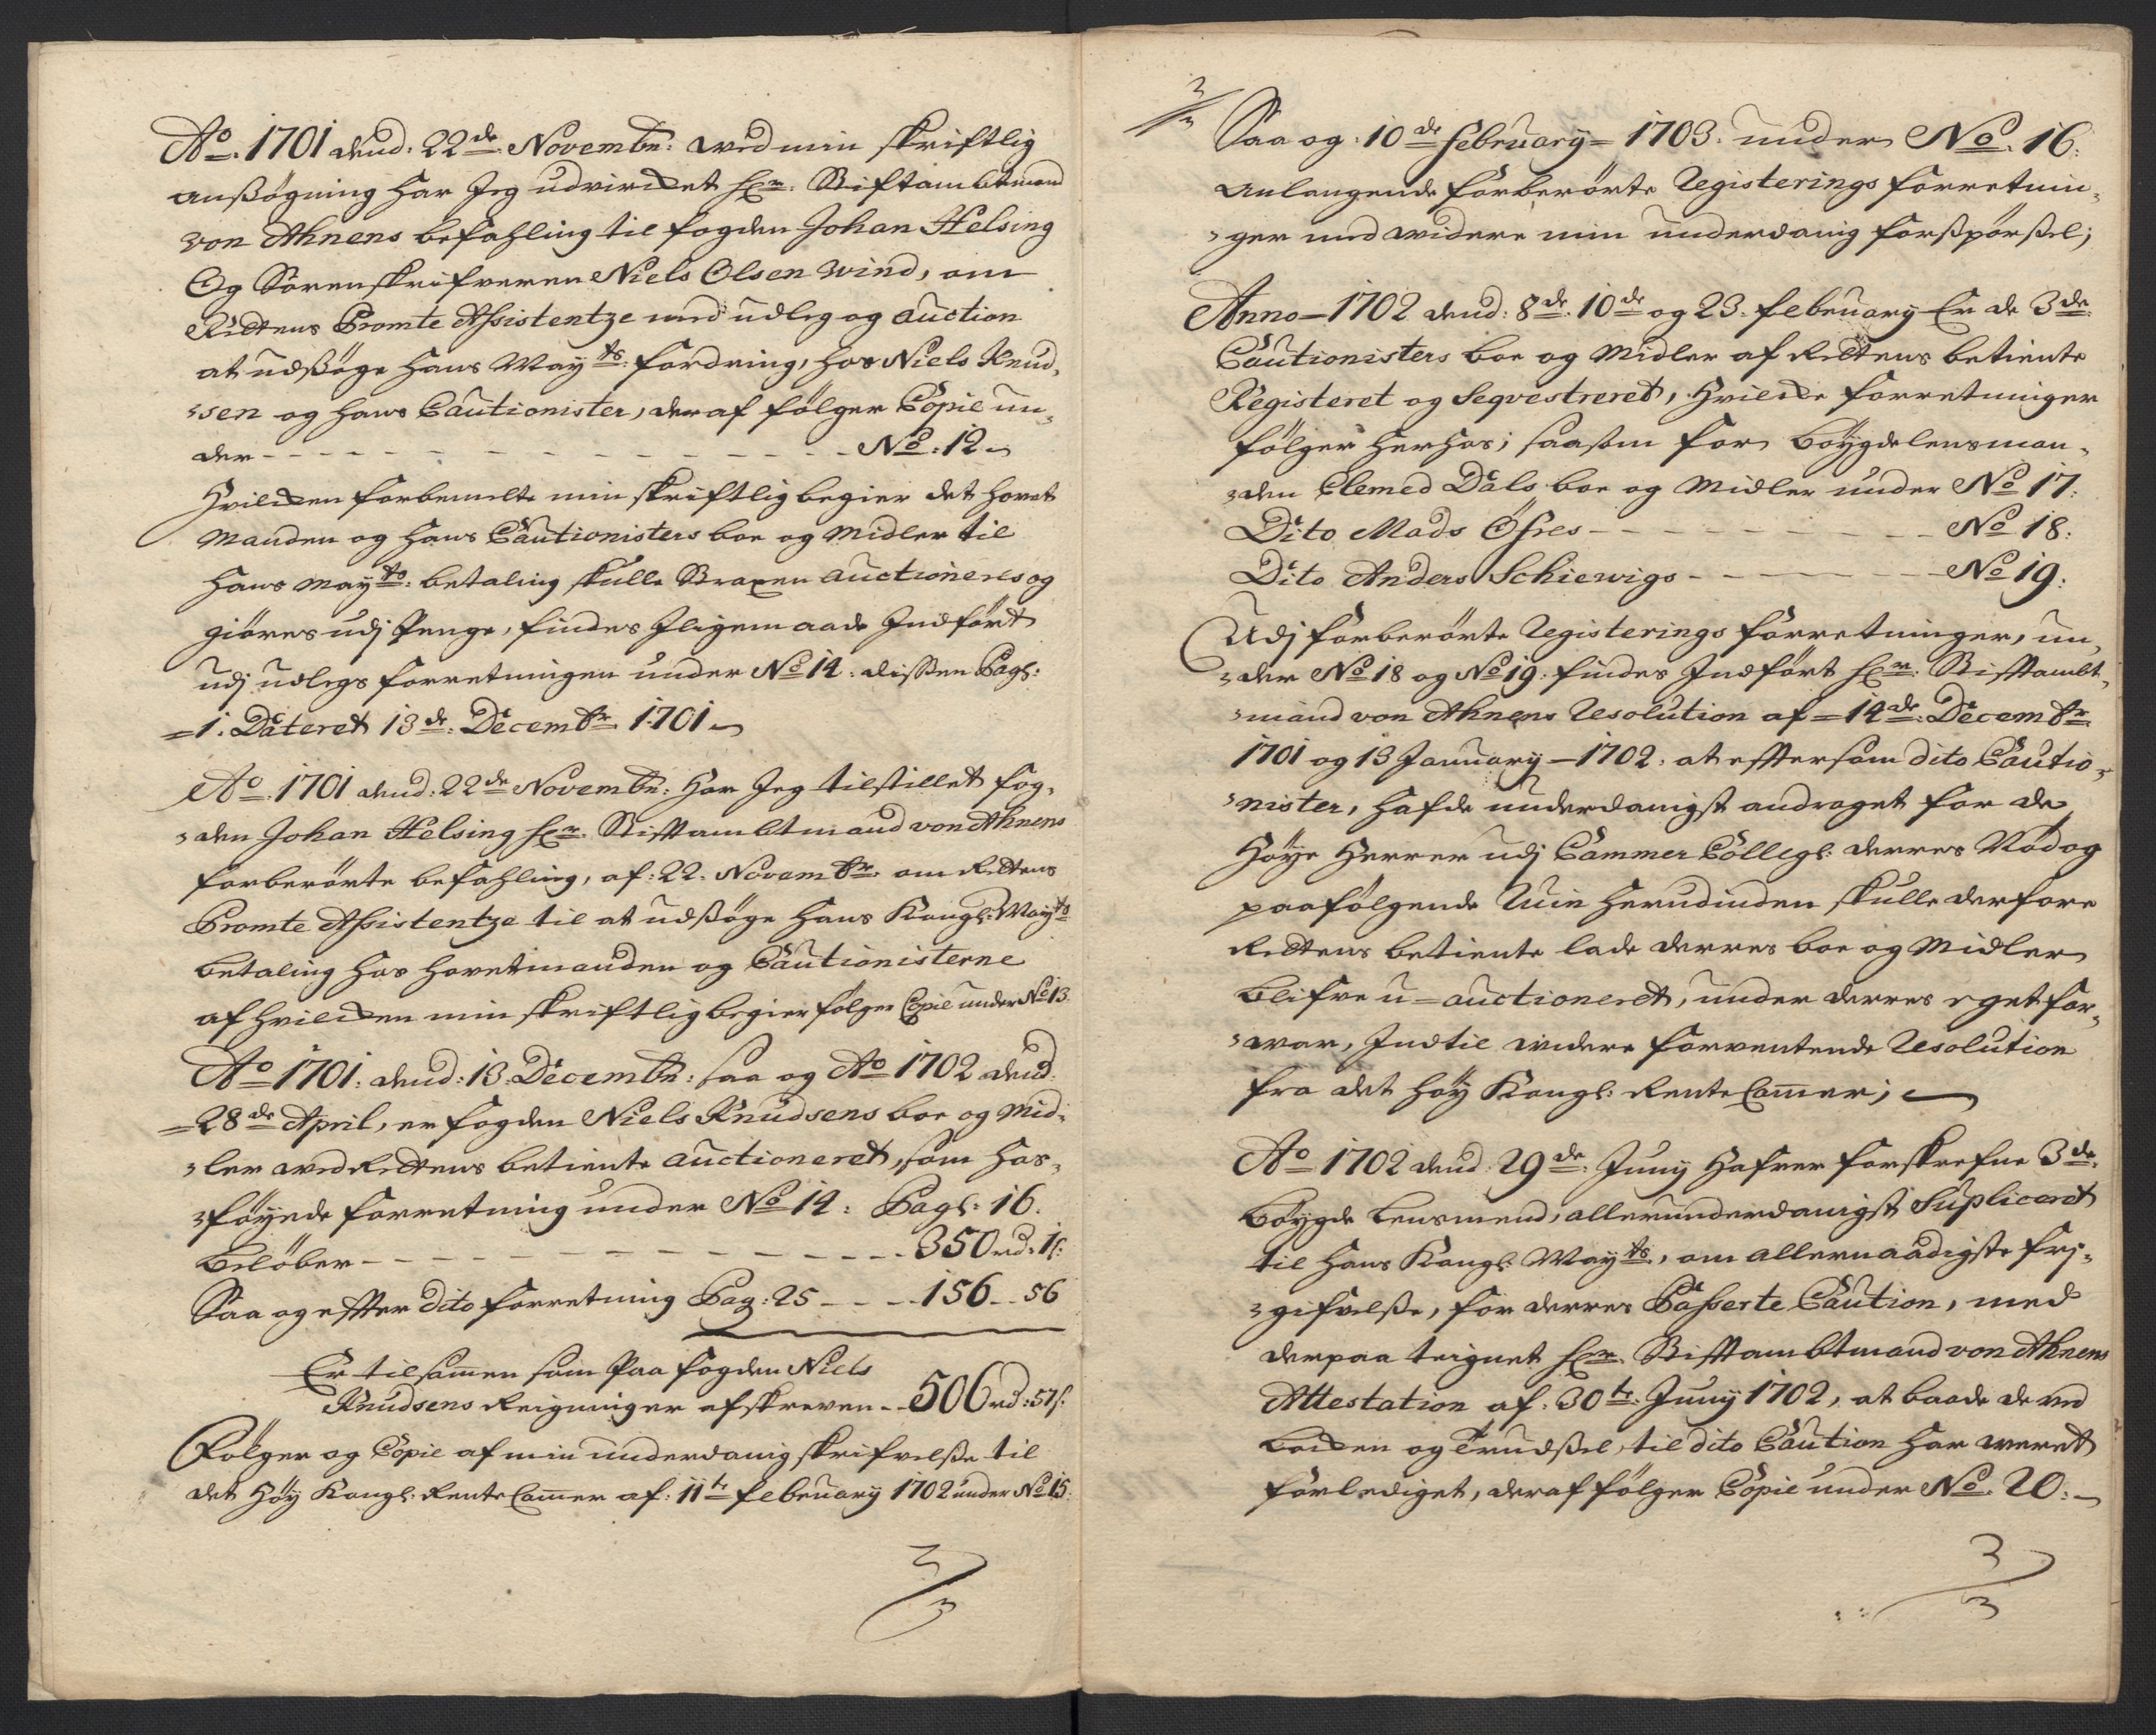 Ao. 1701 dend: 22de Novembr: wed min skriftlig
anßøgning har Jeg udvircket Hr: Stiftambtmand
von Ahnens befahling til fogden Johan Helsing
Og Sørenskrifveren Niels Olsen Wind, om
Rettens Promte Assistentze med udleg og auction
at udßøge Hans Mayts: fordring, hos Niels Knud-
sen og hans Cautionister, deraf følger Copie un-
der - - - - - - - - - - - - No: 12
Hvilcken forbemelte min skriftlig begier det hovet
Manden og hans Cautionisters boe og Midler til
Hans Mayts: betaling skulle Straxen auctioneres og
giøres udj Penge, findes Jligemaade Indført
udj udlegs forretningen under No 14: dißen Pagl:
=1. Dateret 13de: Decembr 1701
Ao. 1701 dend: 22de Novembr: Har Jeg tilstillet fog-
den Johan Helsing Hr: Stiftambtmand von Ahnens
forberørte befahling, af: 22. Novembr om Rettens
Promte Assistentze til at udßøge Hans Kongl: Mayts
betaling hos hovetmanden og Cautionisterne
af hvilcken min skriftlig begier følger Copie under No 13
Ao 1701: dend: 13. Decembr: saa og Ao 1702 dend
=28de April, er fogden Niels Knudsens boe og Mid-
ler wed Rettens betiente auctioneret, som hos-
føyede forretning under No 14: Pagl: 16.
Beløber - - - - - - - - - 350 rd: 1 s:
Saa og effter dito forretning Pag: 25 - - - 156 - 56
Er tilsammen som Paa fogden Niels
Knudsens Reigninger afskreven - - 506 rd: 57 s:
Følger og Copie af min underdanig skrifvelße til
det Høy Kongl: Rente Cammer af: 11te february 1702 under No 15:
Saa og: 10de february = 1703: under No. 16:
Anlangende forberørte Registerings forretnin-
ger med widere min underdanig forßpørßel;
Anno - 1702 dend: 8de. 10de og 23. february Er de 3de
Cautionisters boe og Midler af Rettens betiente
Registeret og Seqvestreret, Hvilcke forretninger
følger herhos; saasom for bøygdelensman-
den Elemed Dals boe og Midler under No 17:
Dito Mads Øfres - - - - - - - No 18:
Dito Anders Schiewigs - - - - - No 19:
Udj forberørte Registerings forretninger, un-
der No 18 og No 19: findes Indført Hr: Stifftambt-
mand von Ahnens Resolution af = 14de: Decembr
1701 og 13 January - 1702: at efftersom dito Cautio-
nister, hafde underdanigst andraget for de
Høye Herrer udj Cammer Collegl: derres Nød og
paafølgende Ruin herudinden skulle derfore
Rettens betiente lade derres boe og Midler
blifve u=auctioneret, under derres eget for-
war, Indtil widere forventende Resolution
fra det Høy Kongl: Rente Cammer;
Ao 1702 dend: 29de: Juny Hafver forskrefne 3de
bøygde lensmend, allerunderdanigst Supliceret
til Hans Kongl: Mayts, om allernaadigste frj-
gifvelße, for derres Passerte Caution, med
derpaa teignet Hr: Stifftambtmand von Ahnens
Attestation af: 30te: Juny 1702, at baade de wed
locken og Trudßel, til dito Caution har weret
forlediget, deraf følger Copie under No. 20: